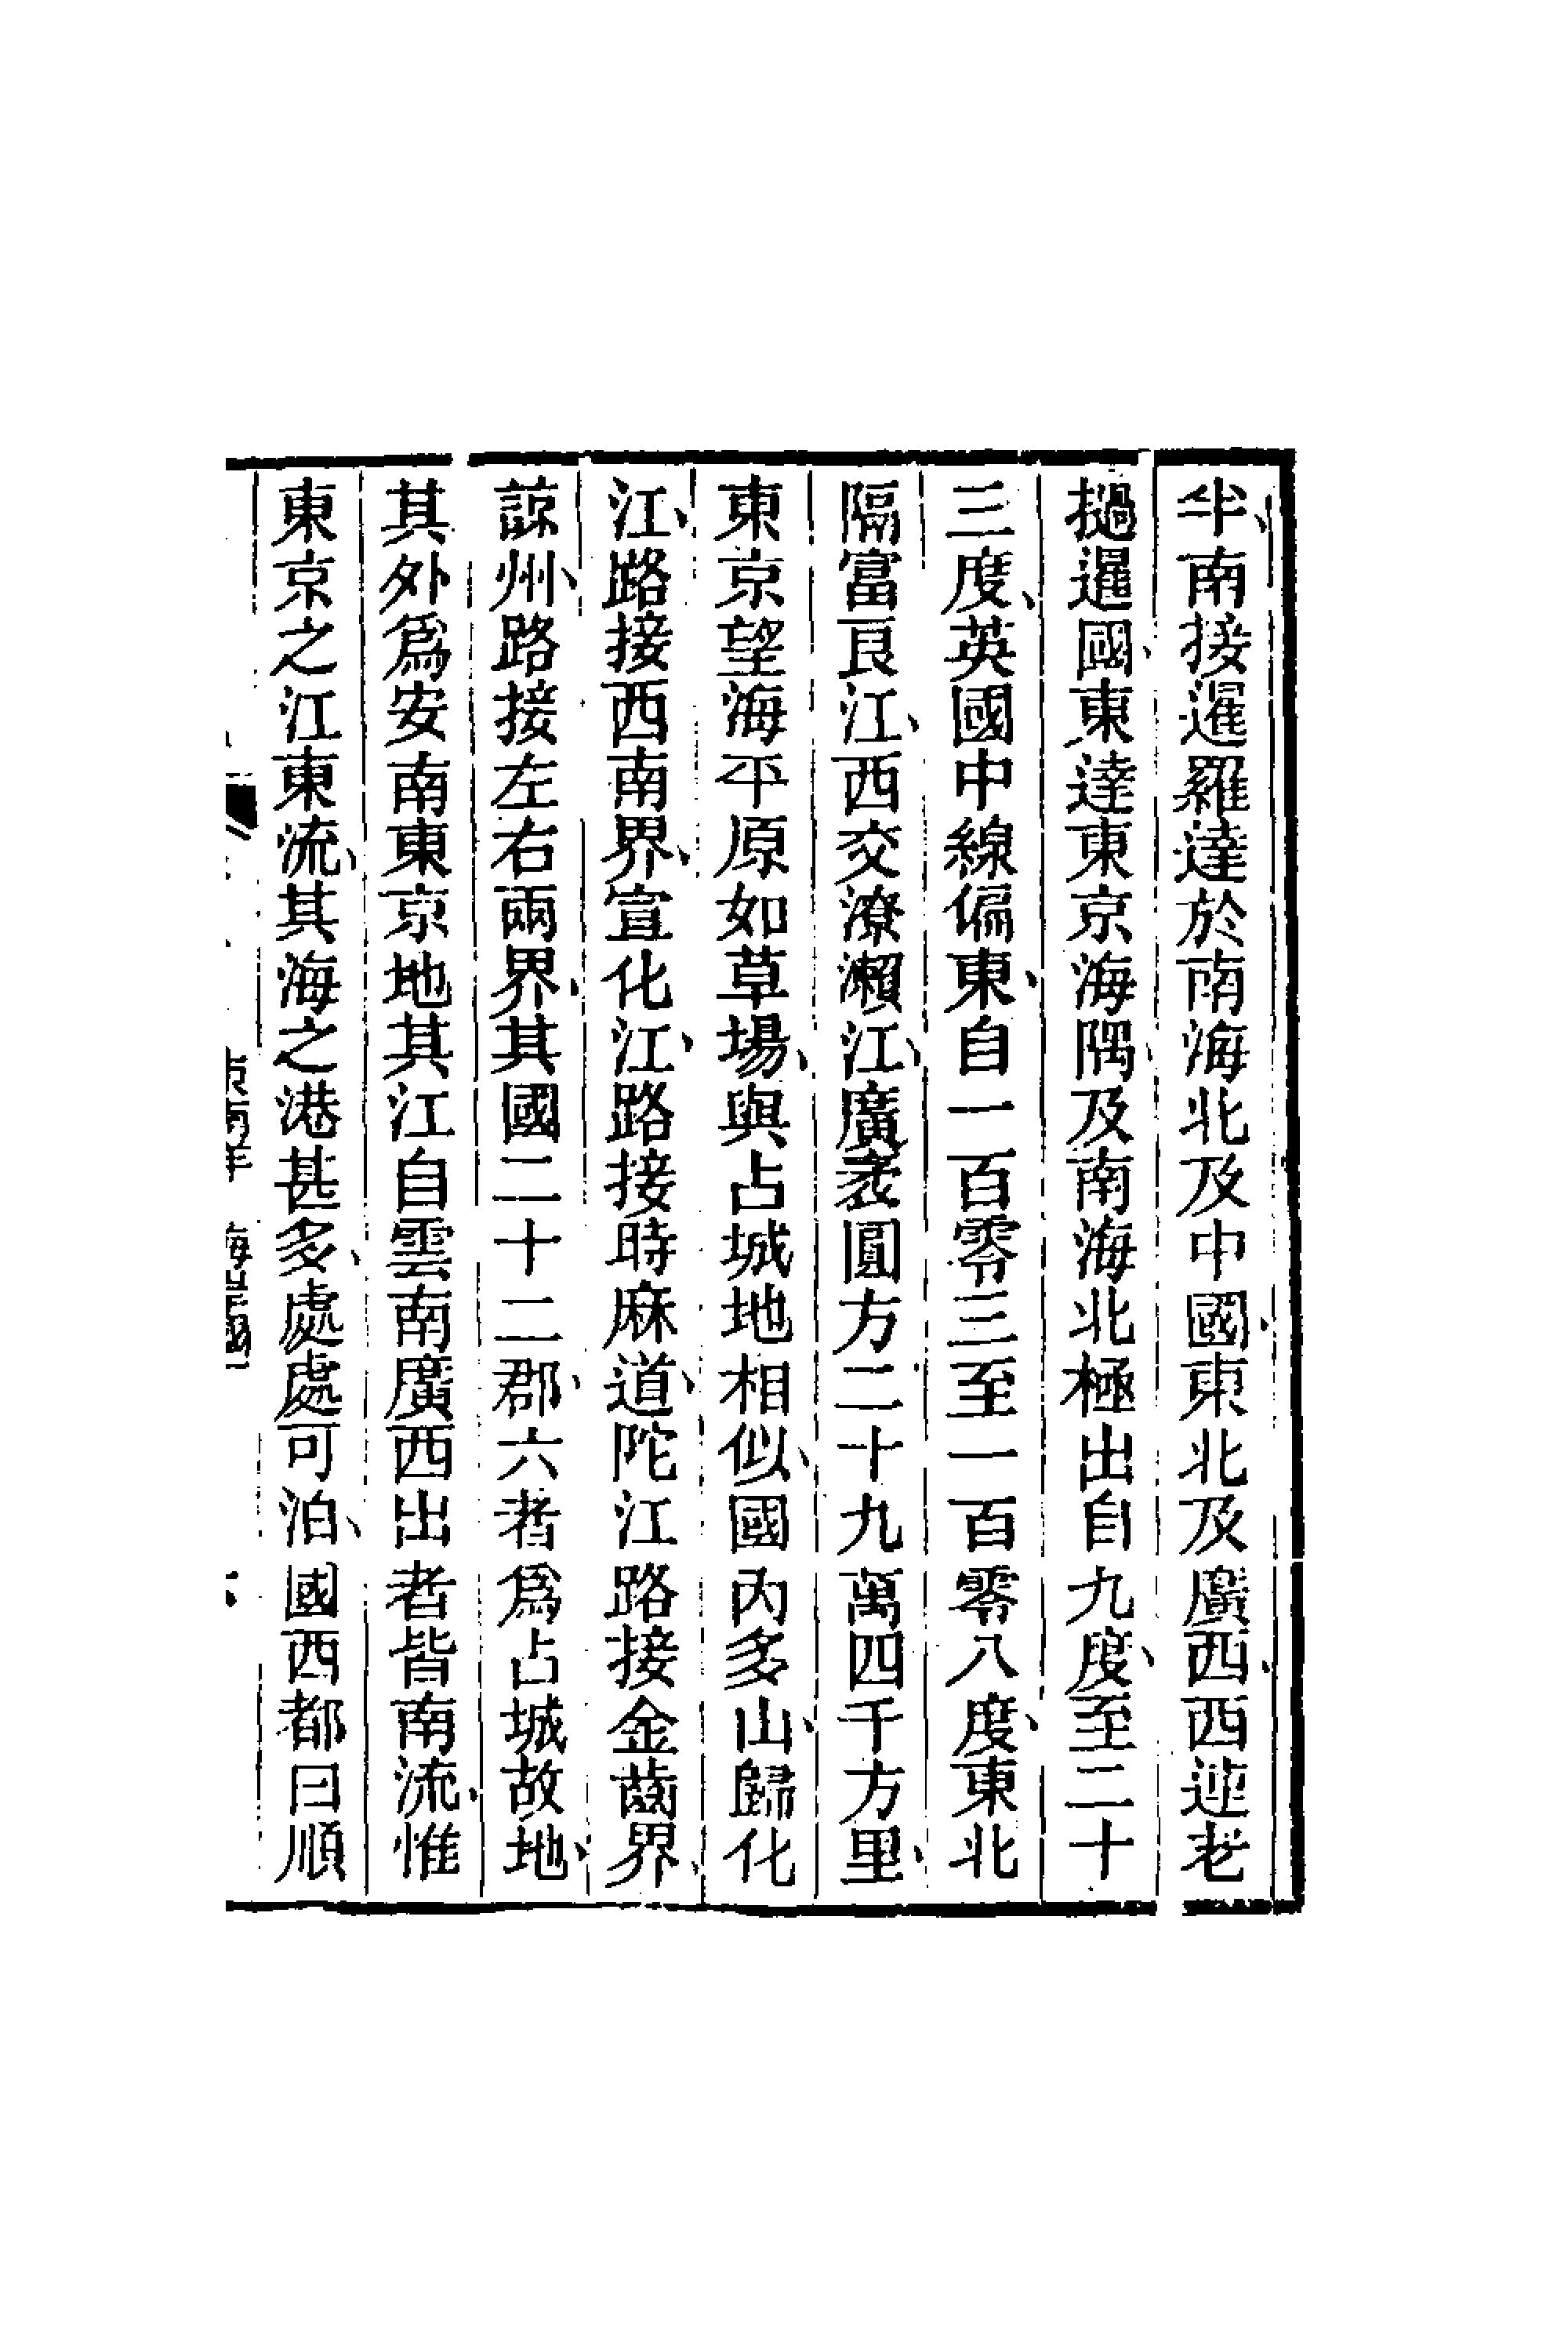 半、南接暹羅達於南海北及中國、東北及廣西、西連老
撾暹國、東達東京海隅、及南海北極出自九度、至二十
三度、英國中線偏東、自一百零三至一百零八度、東北
隔富良江、西交潦瀨江、廣袤圓方二十九萬四千方里、
東京望海平原如草場、與占城地相似、國內多山、歸化
江、路接西南界、宣化江、路接時麻道、陀江路接金齒界、
諒州、路接左右兩界、其國二十二郡、六者爲占城故地、
其外爲安南東京地其江自雲南廣西出者皆南流、惟
東京之江東流、其海之港甚多、處處可泊、國西都曰順
東南洋 海岸國一
六